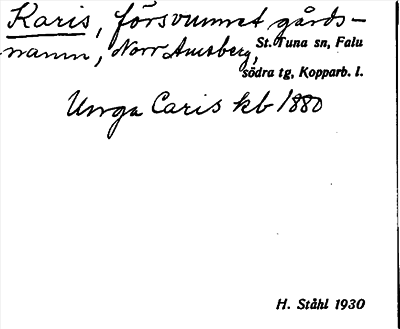 Karis, försvunnet gårds-
namn, Norr Amsberg, St. Tuna sn, Falu
södra tg, Kopparb. l.
Unga Caris kb 1880
H. Ståhl 1930